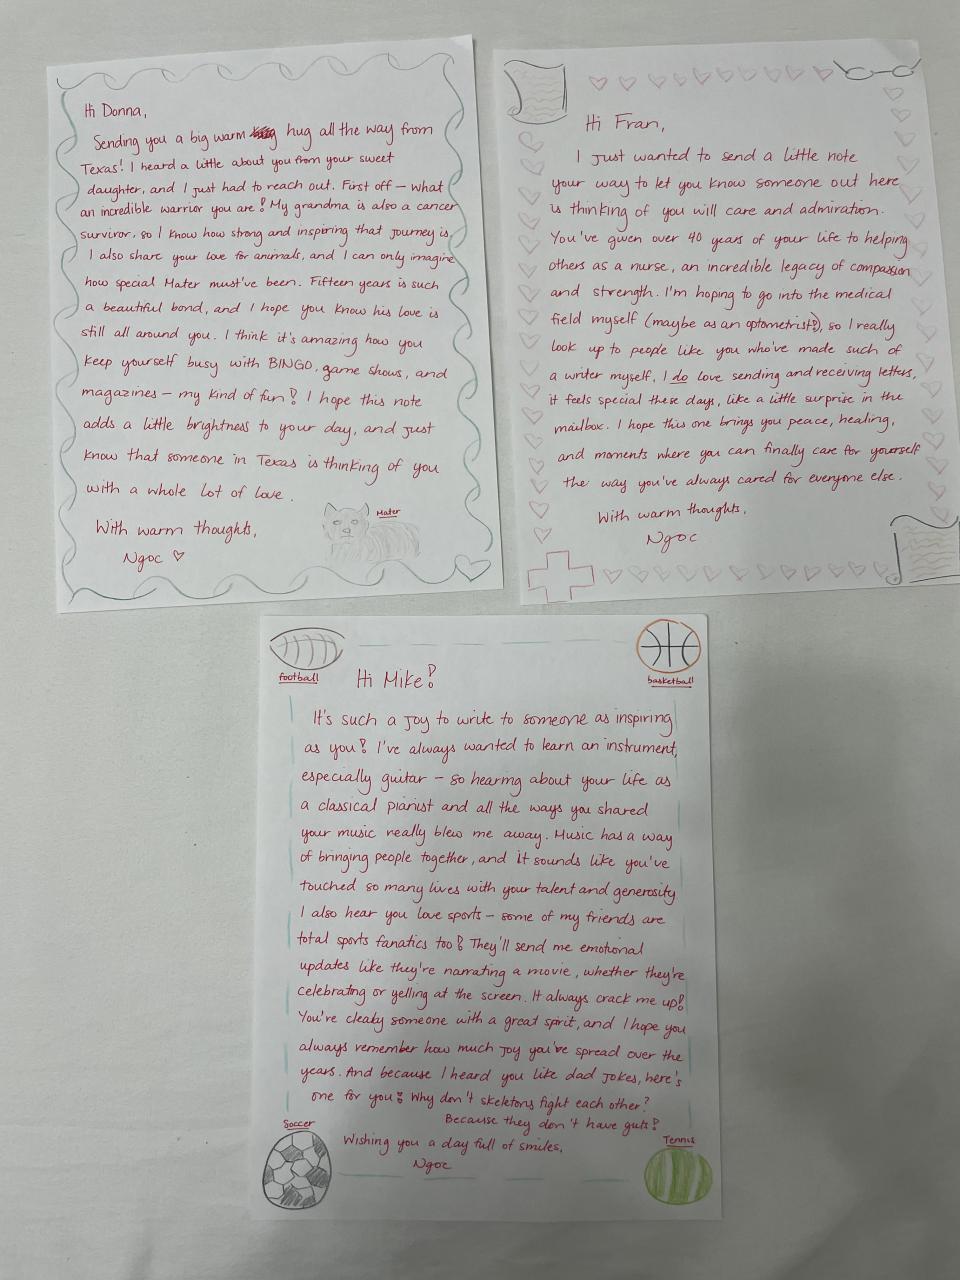 Hi Donna,
Sending you a big warm hug all the way from
Texas! I heard a little about you from your sweet
daughter, and I just had to reach out. First off – what
an incredible warrior you are! My grandma is also a cancer
survivor, so I know how strong and inspiring that journey is.
I also share your love for animals, and I can only imagine
how special Mater must've been. Fifteen years is such
a beautiful bond, and I hope you know his love is
still all around you. I think it's amazing how you
keep yourself busy with BINGO, game shows, and
magazines – my kind of fun! I hope this note
adds a little brightness to your day, and just
know that someone in Texas is thinking of you
with a whole lot of love.
With warm thoughts,
Ngoc ♡
Mater
Hi Fran,
I just wanted to send a little note
your way to let you know someone out here
is thinking of you will care and admiration.
You've given over 40 years of your life to helping
others as a nurse, an incredible legacy of compassion
and strength. I'm hoping to go into the medical
field myself (maybe as an optometrist!), so I really
look up to people like you who've made such of
a writer myself, I do love sending and receiving letters,
it feels special these days, like a little surprise in the
mailbox. I hope this one brings you peace, healing,
and moments where you can finally care for yourself
the way you've always cared for everyone else.
With warm thoughts,
Ngoc
football
basketball
Hi Mike!
It's such a joy to write to someone as inspiring
as you! I've always wanted to learn an instrument,
especially guitar – so hearing about your life as
a classical pianist and all the ways you shared
your music really blew me away. Music has a way
of bringing people together, and it sounds like you've
touched so many lives with your talent and generosity
I also hear you love sports – some of my friends are
total sports fanatics too! They'll send me emotional
updates like they're narrating a movie, whether they're
celebrating or yelling at the screen. It always crack me up!
You're cleaky someone with a great spirit, and I hope you
always remember how much joy you've spread over the
years. And because I heard you like dad jokes, here's
one for you! Why don't skeletons fight each other?
Because they don't have guts!
Wishing you a day full of smiles,
Ngoc
Soccer
Tennis